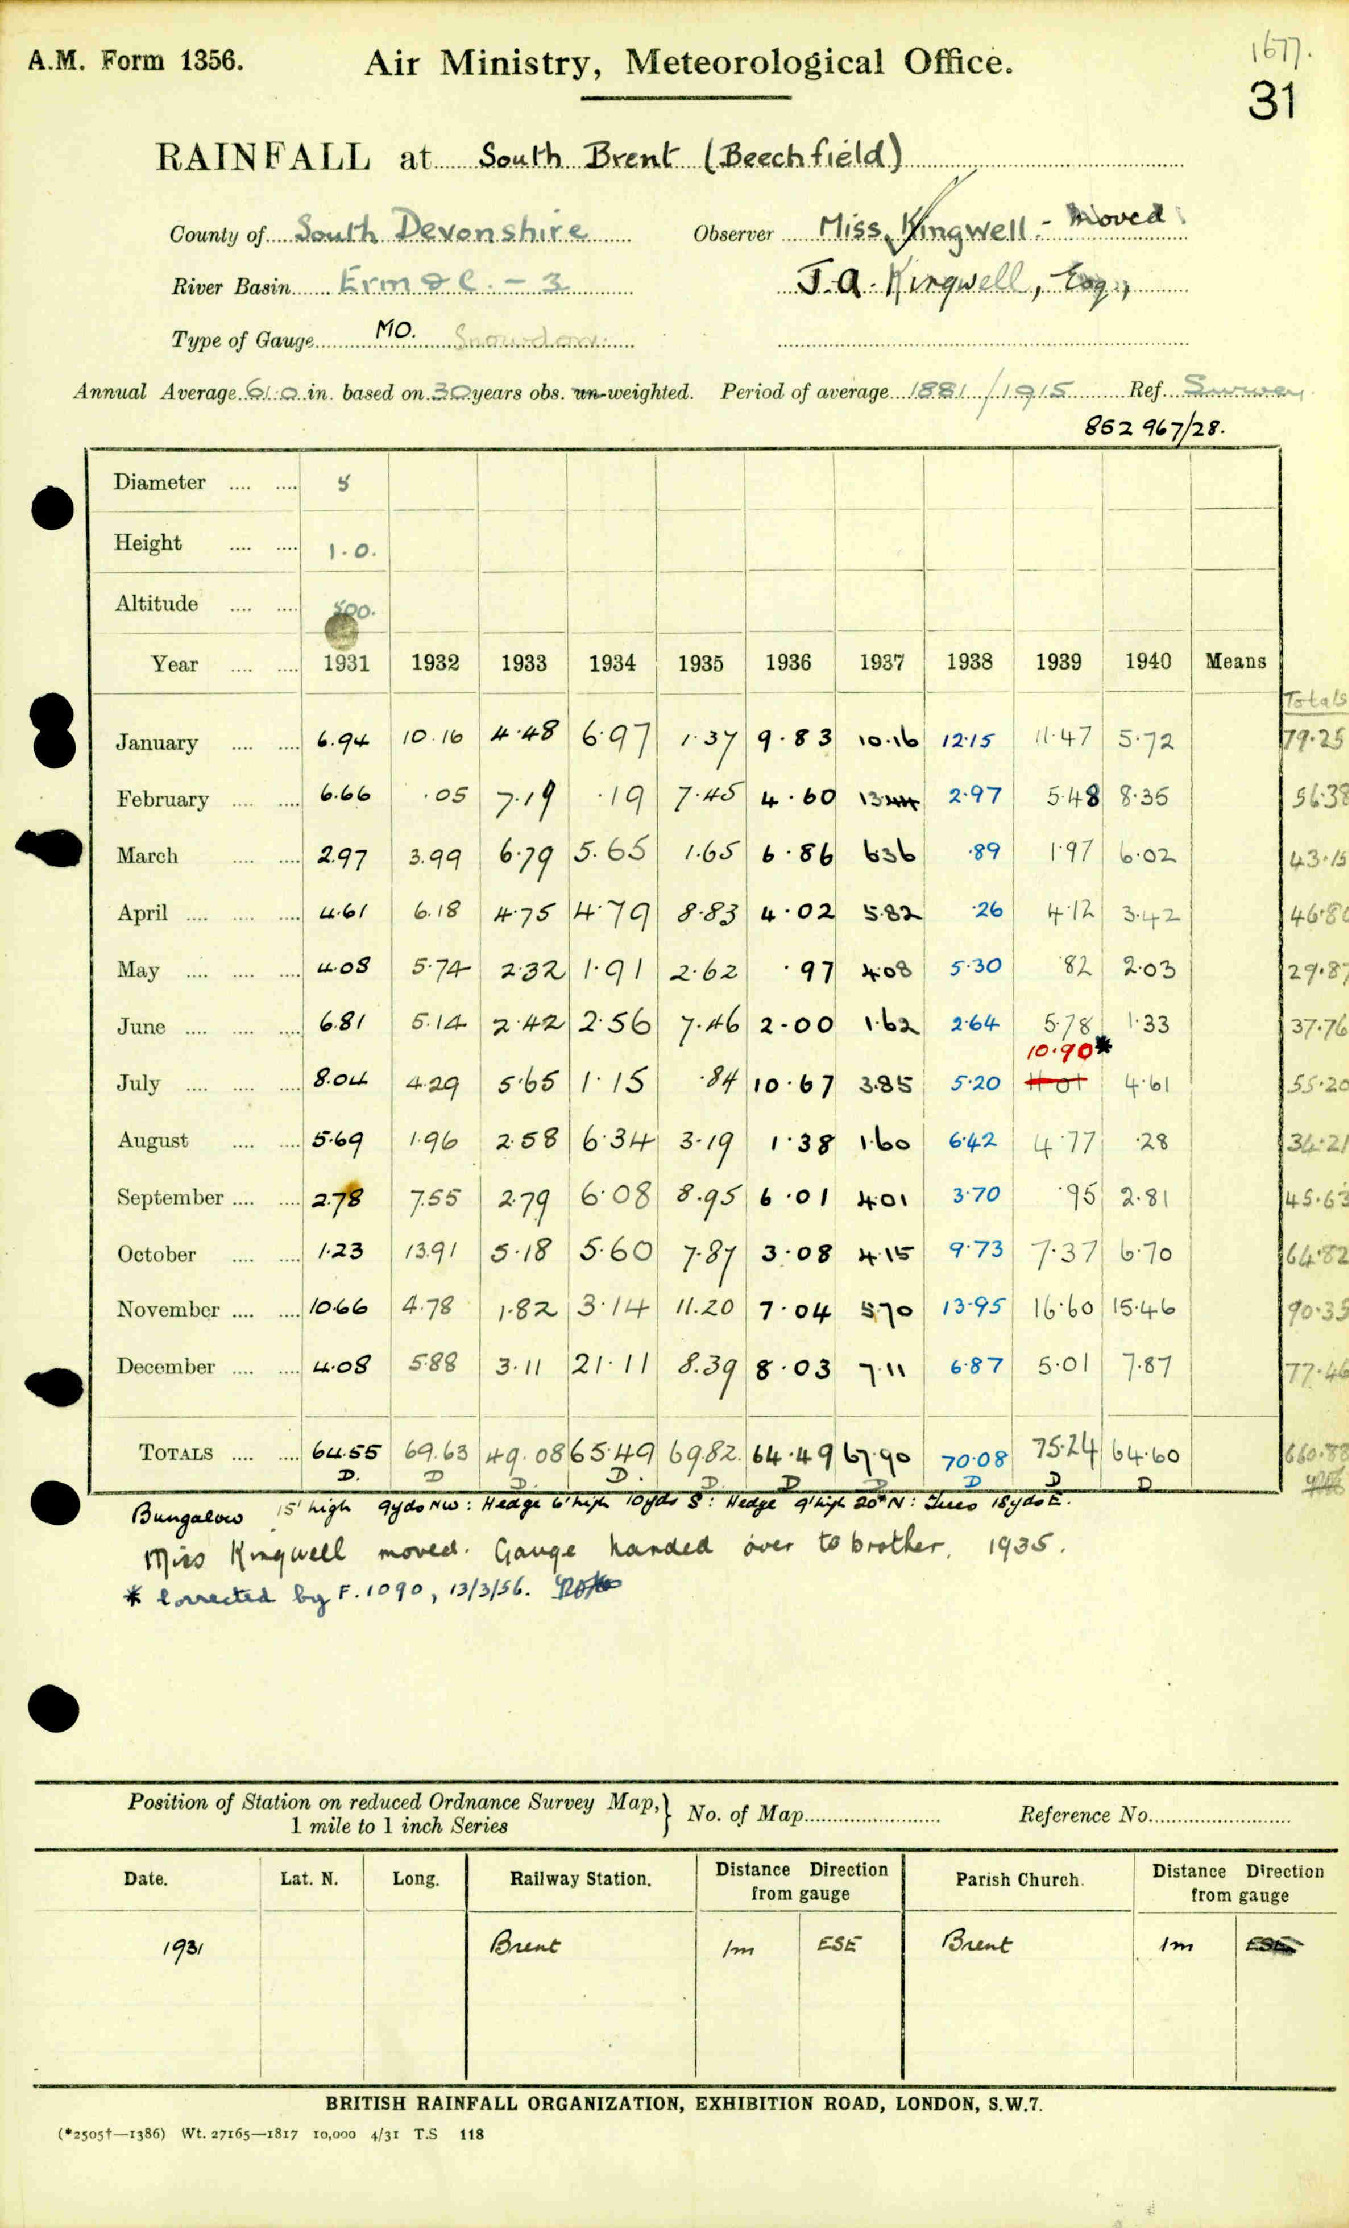 A.M. Form 1356.
Air Ministry, Meteorological Office.
1677.
31
RAINFALL at South Brent (Beechfield)
County of South Devonshire
Observer Miss Kingwell - moved
River Basin Erm &c. - 3
J.A. Kingwell, Esq.,
Type of Gauge MO. Snowdon.
Annual Average 61.0 in. based on 30 years obs. un-weighted. Period of average 1881/1915 Ref. Survey
852 967/28.
Diameter 5
Height 1.0.
Altitude 500.
Year 1931 1932 1933 1934 1935 1936 1937 1938 1939 1940 Means
Totals
January 6.94 10.16 4.48 6.97 1.37 9.83 10.16 12.15 11.47 5.72 79.25
February 6.66 .05 7.19 .19 7.45 4.60 13.44 2.97 5.48 8.35 56.38
March 2.97 3.99 6.79 5.65 1.65 6.86 6.36 .89 1.97 6.02 43.15
April 4.61 6.18 4.75 4.79 8.83 4.02 5.82 .26 4.12 3.42 46.80
May 4.08 5.74 2.32 1.91 2.62 .97 4.08 5.30 .82 2.03 29.87
June 6.81 5.14 2.42 2.56 7.46 2.00 1.62 2.64 5.78 1.33 37.76
10.90*
July 8.04 4.29 5.65 1.15 .84 10.67 3.85 5.20 11.01 4.61 55.20
August 5.69 1.96 2.58 6.34 3.19 1.38 1.60 6.42 4.77 .28 34.21
September 2.78 7.55 2.79 6.08 8.95 6.01 4.01 3.70 .95 2.81 45.63
October 1.23 13.91 5.18 5.60 7.87 3.08 4.15 9.73 7.37 6.70 64.82
November 10.66 4.78 1.82 3.14 11.20 7.04 5.70 13.95 16.60 15.46 90.35
December 4.08 5.88 3.11 21.11 8.39 8.03 7.11 6.87 5.01 7.87 77.46
TOTALS 64.55 69.63 49.08 65.49 69.82 64.49 67.90 70.08 75.24 64.60 660.88
D. D D. D. D. D D D D D
Bungalow 15' high 9yds NW: Hedge 6' high 10yds S: Hedge 9' high 20° N: Trees 18yds E.
Miss Kingwell moved. Gauge handed over to brother, 1935.
* Corrected by F.1090, 13/3/56.
Position of Station on reduced Ordnance Survey Map,} No. of Map Reference No.
1 mile to 1 inch Series
Date. Lat. N. Long. Railway Station. Distance Direction from gauge Parish Church. Distance Direction from gauge
1931 Brent 1m ESE Brent 1m ESE
BRITISH RAINFALL ORGANIZATION, EXHIBITION ROAD, LONDON, S.W.7.
(*2505†—1386) Wt. 27165—1817 10,000 4/31 T.S 118